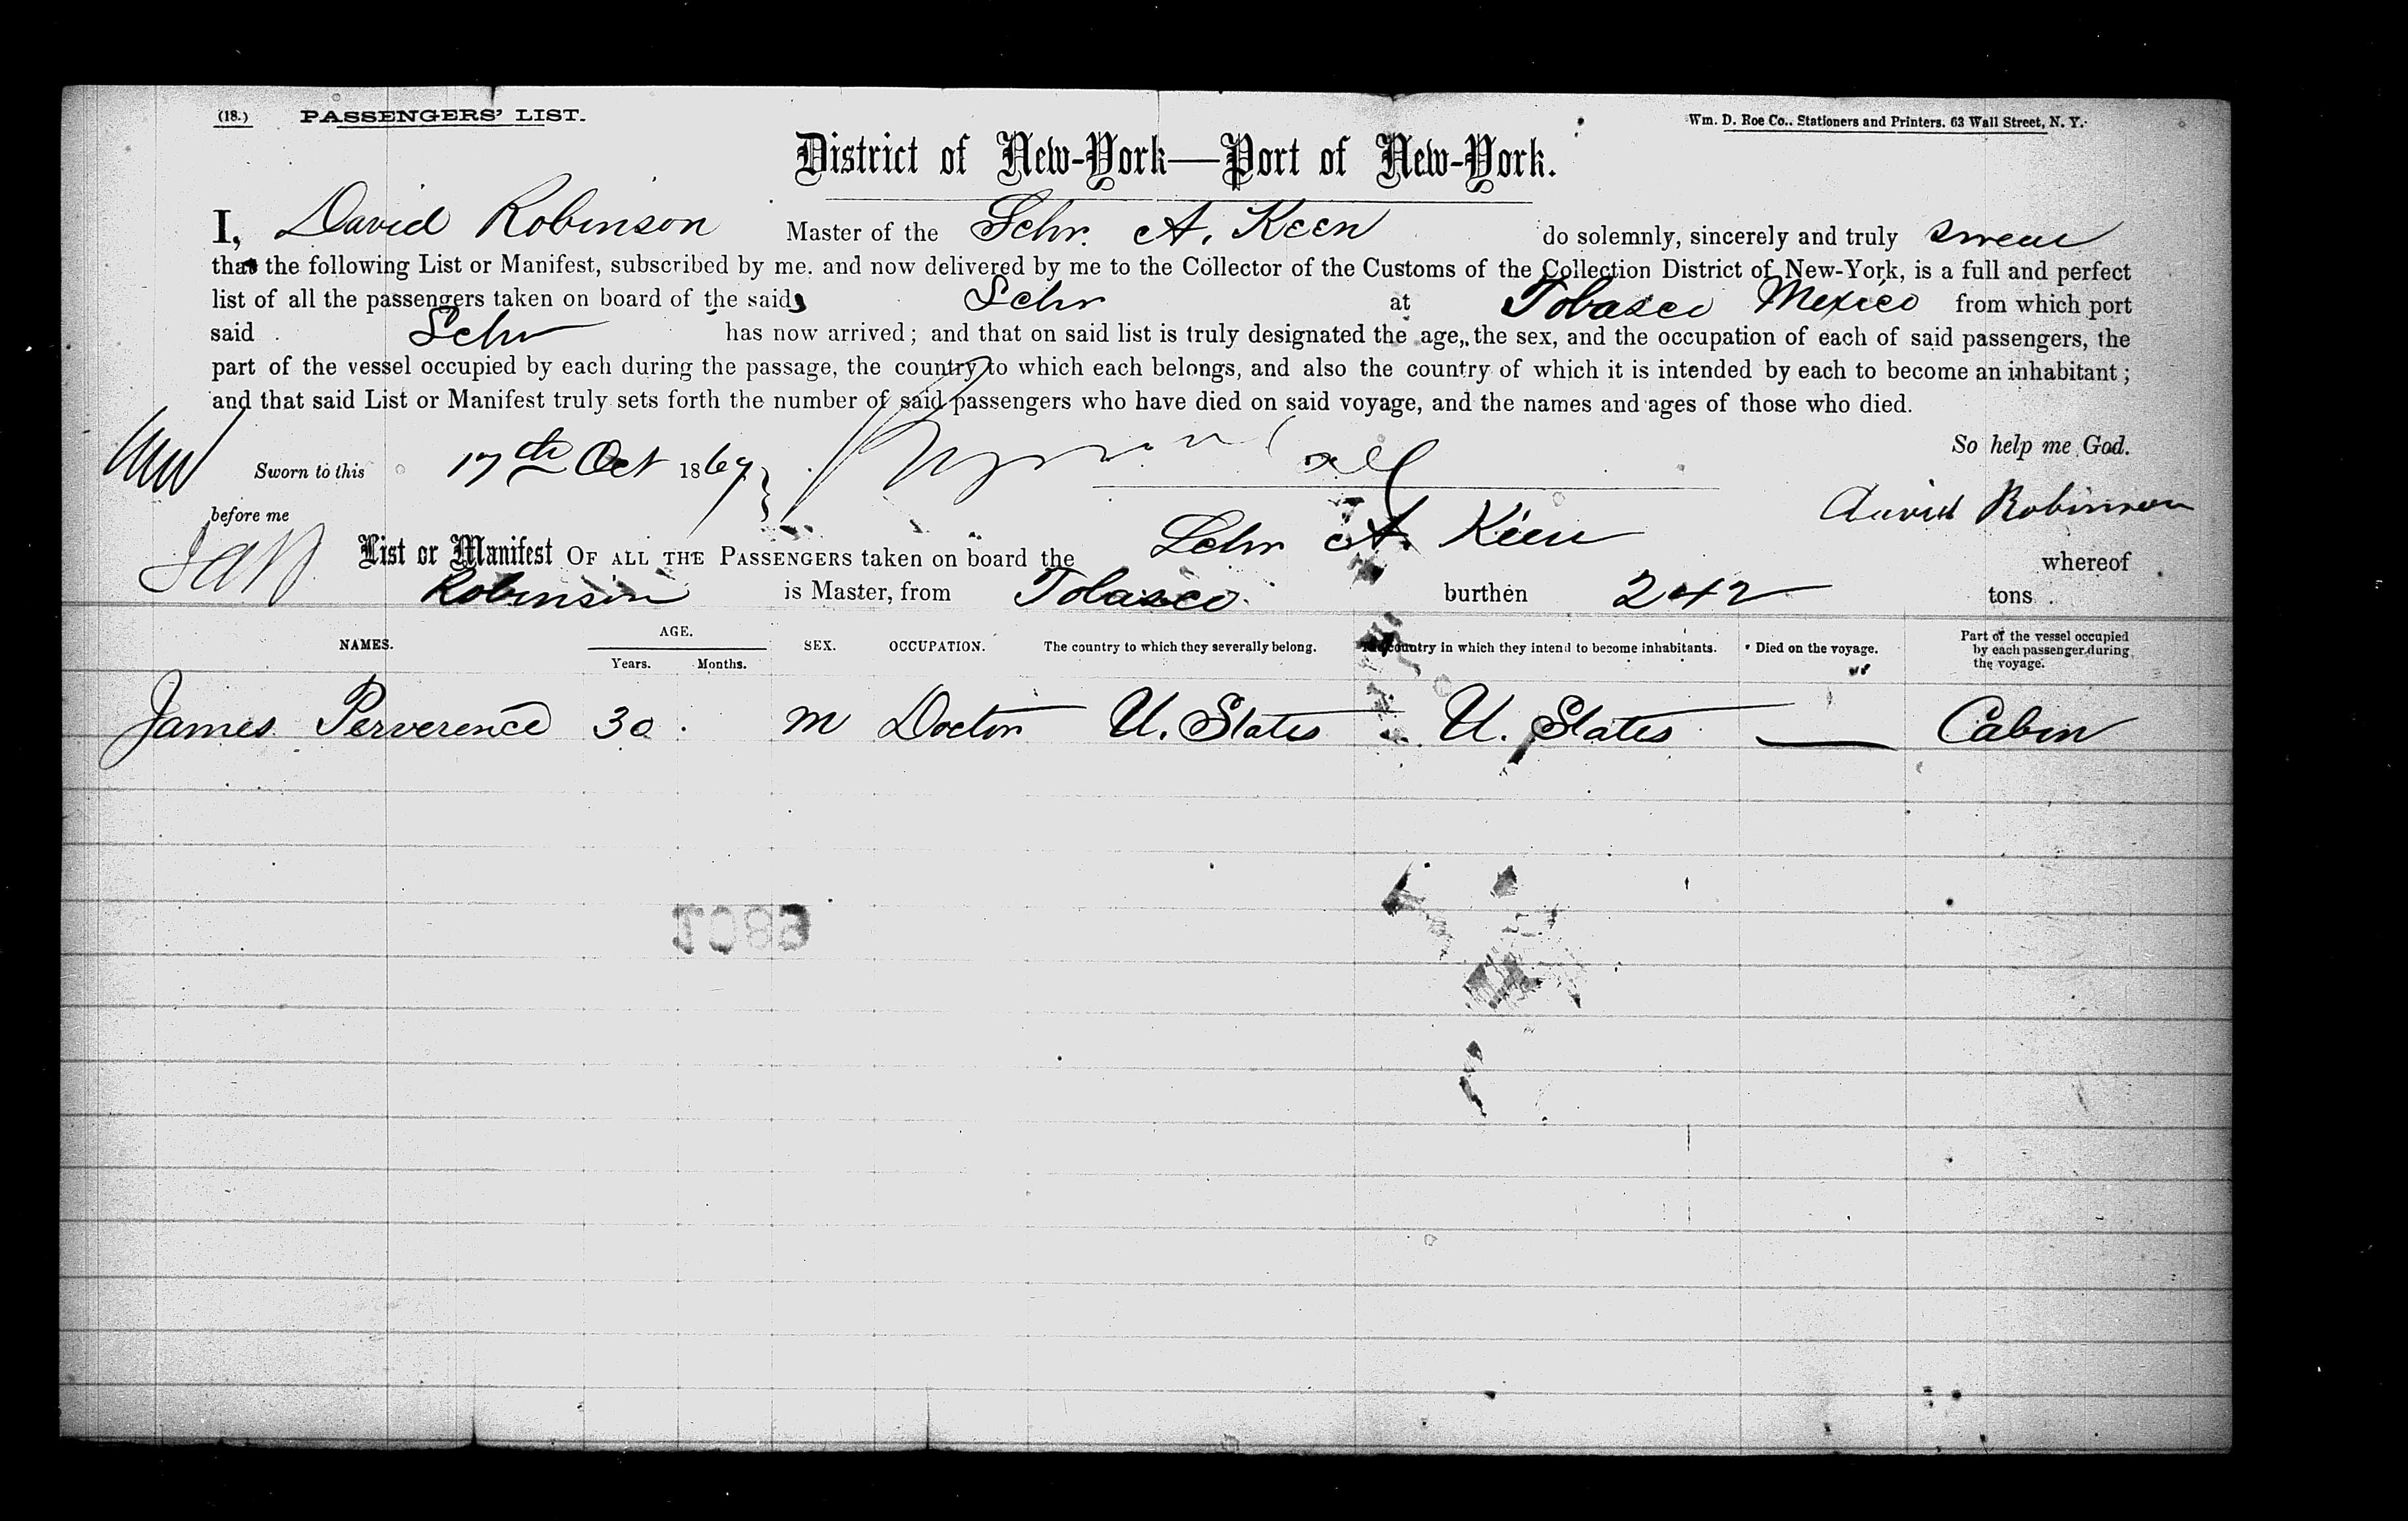 (18.) PASSENGERS' LIST.
Wm. D. Roe Co., Stationers and Printers. 63 Wall Street, N. Y.
District of New-York—Port of New-York.
I, David Robinson Master of the Schr. A. Keen do solemnly, sincerely and truly swear
that the following List or Manifest, subscribed by me. and now delivered by me to the Collector of the Customs of the Collection District of New-York, is a full and perfect
list of all the passengers taken on board of the said Schr at Tobasco Mexico from which port
said Schr has now arrived; and that on said list is truly designated the age, the sex, and the occupation of each of said passengers, the
part of the vessel occupied by each during the passage, the country to which each belongs, and also the country of which it is intended by each to become an inhabitant;
and that said List or Manifest truly sets forth the number of said passengers who have died on said voyage, and the names and ages of those who died.
So help me God.
Sworn to this 17th Oct 1867
before me
David Robinson
List or Manifest OF ALL THE PASSENGERS taken on board the Schr A. Keen whereof
Robinson is Master, from Tobasco burthen 242 tons
NAMES. AGE. Years. Months. SEX. OCCUPATION. The country to which they severally belong. The country in which they intend to become inhabitants. Died on the voyage. Part of the vessel occupied by each passenger during the voyage.
James Perverence 30 M Doctor U. States U. States — Cabin
1089